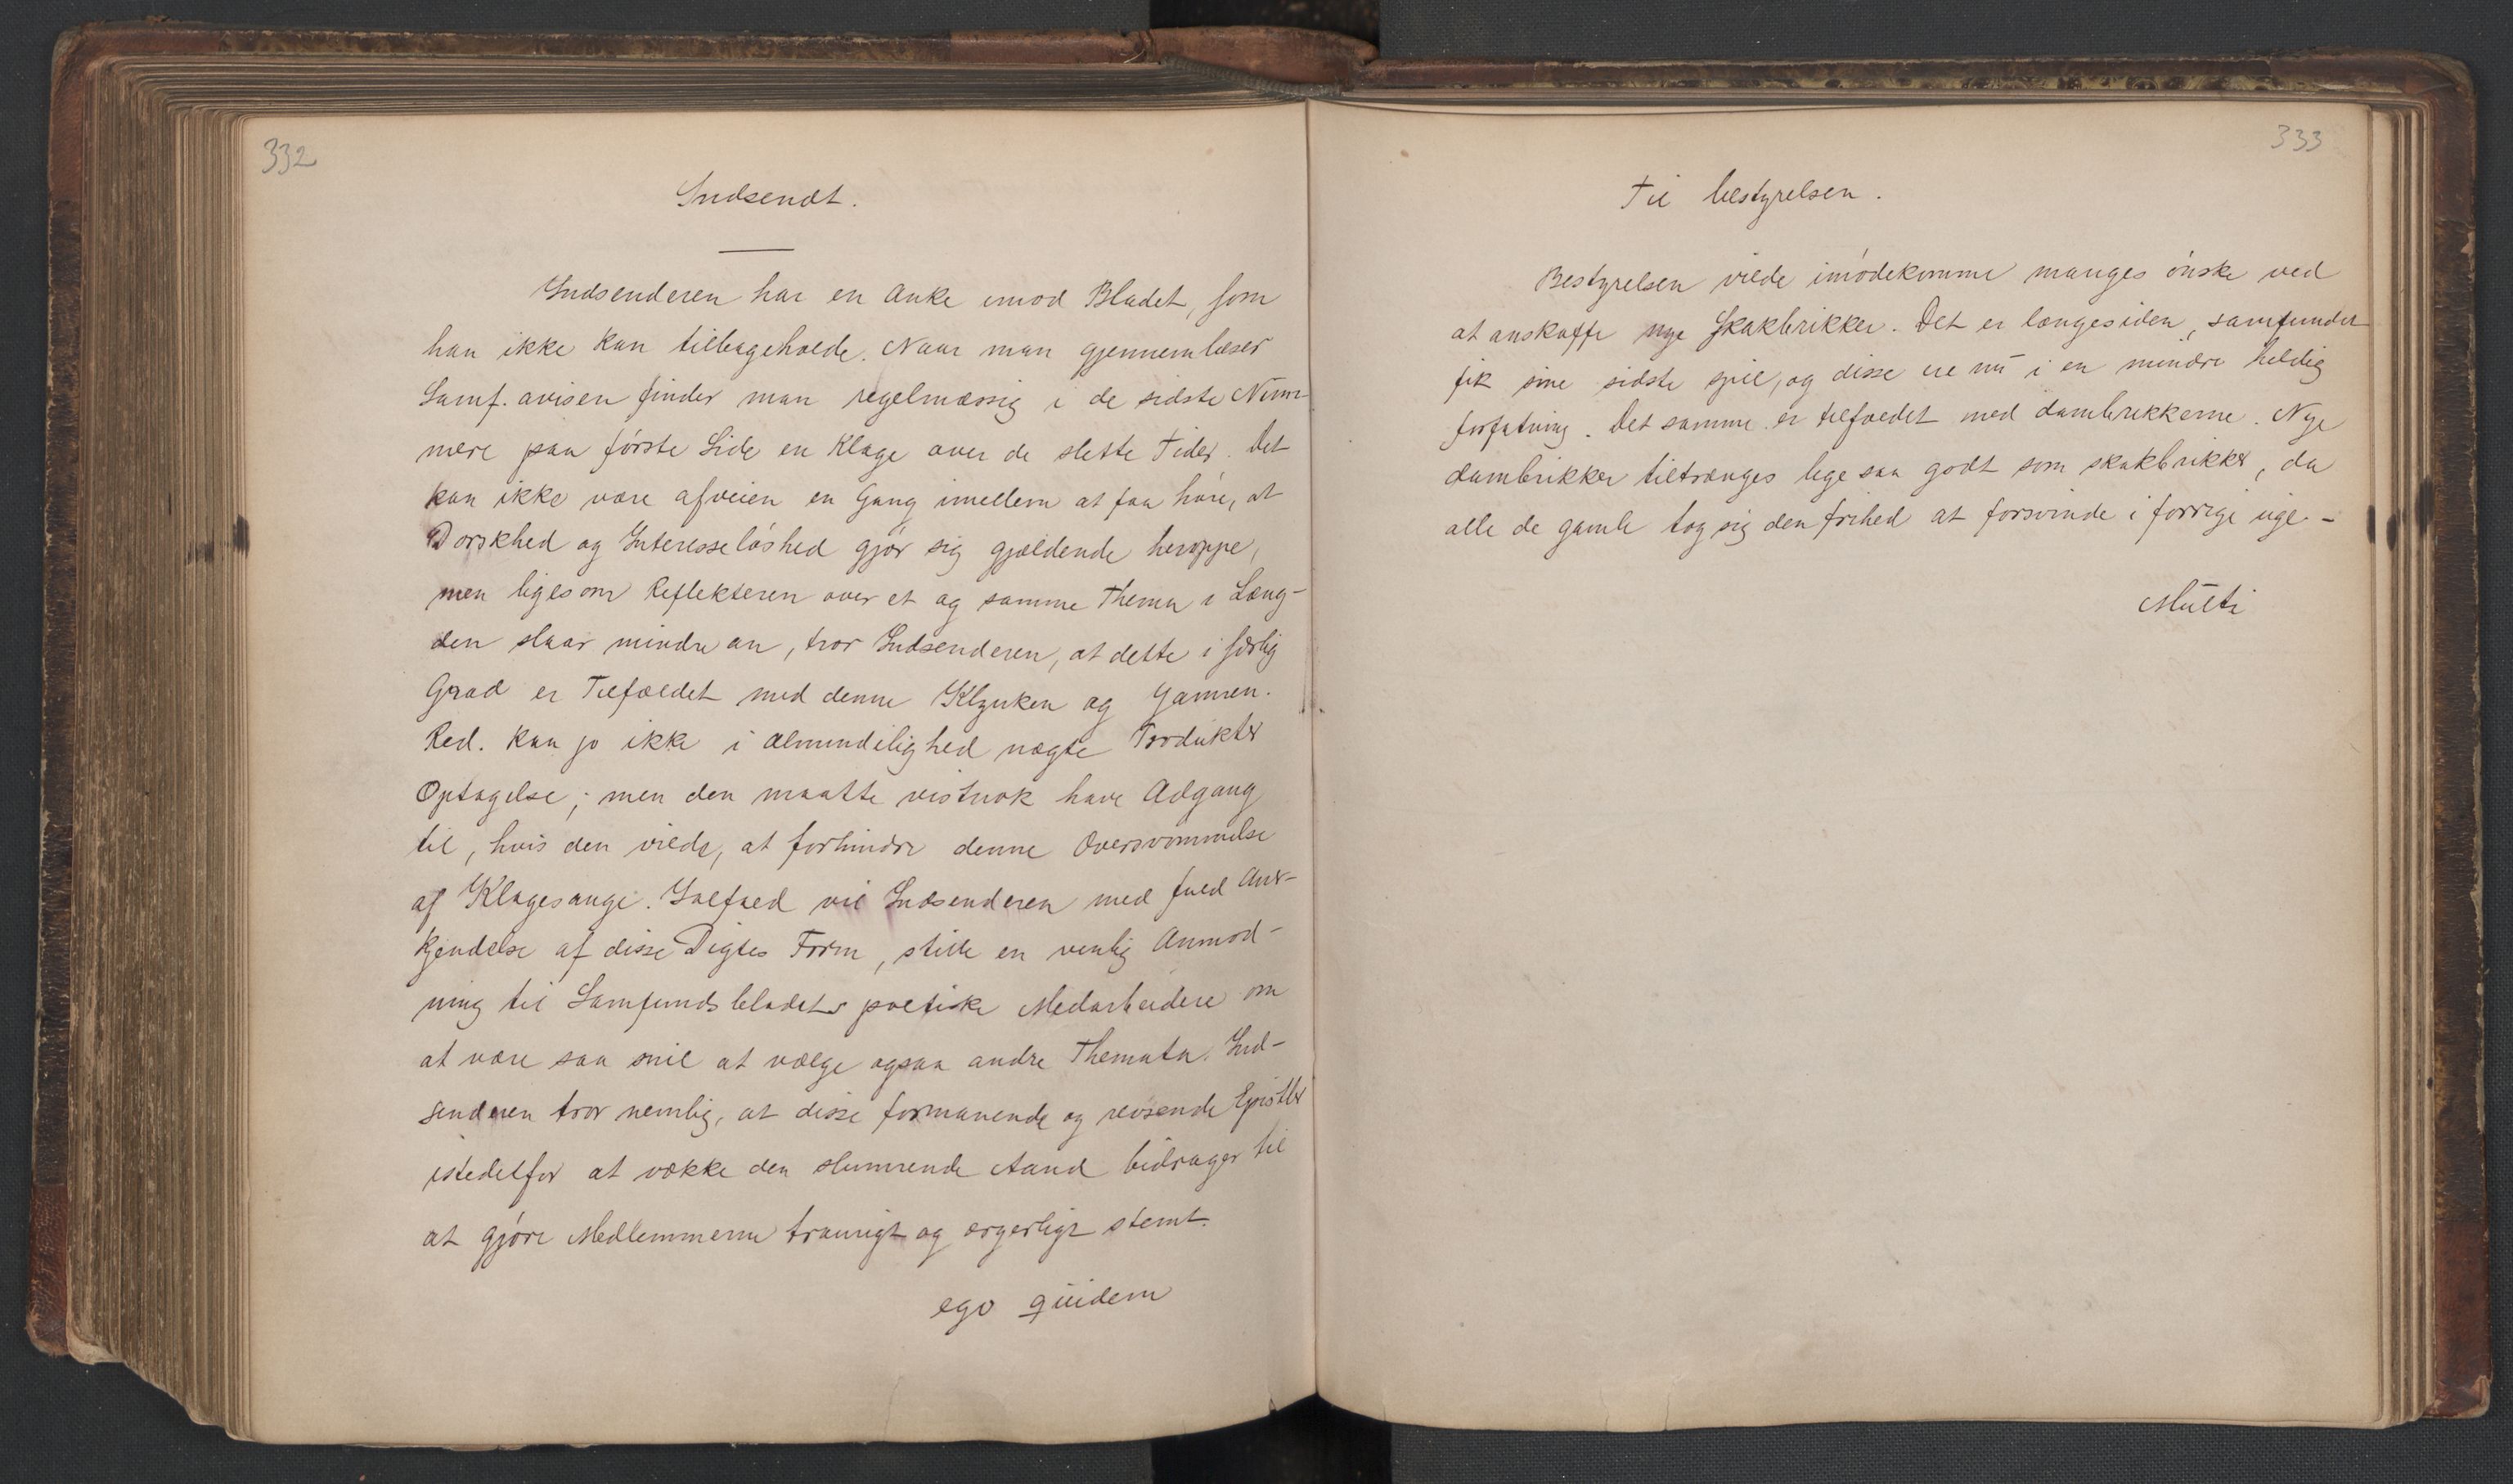 332
Indsendt.
Indsenderen har en Anke imod Bladet, som
han ikke kan tilbageholde. Naar man gjennemlæser
Samf. avisen finder man regelmæssig i de sidste Num-
mere paa første Side en Klage over de slette Tider. Det
kan ikke være afveien en Gang imellem at faa høre, at
Dorskhed og Interesseløshed gjør sig gjældende heroppe,
men ligesom Reflekteren over et og samme Thema i Læng-
den slaar mindre an, tror Indsenderen, at dette i særlig
Grad er Tilfældet med denne Klynken og Jamren.
Red. kan jo ikke i Almindelighed nægte Produkter
Optagelse; men den maatte vistnok have Adgang
til, hvis den vilde, at forhindre denne Oversvømmelse
af Klagesange. Ialfald vil Indsenderen med fuld Aner-
kjendelse af disse Digtes Form, stille en venlig Anmod-
ning til Samfundsbladets poetiske Medarbeidere om
at være saa snil at vælge ogsaa andre Themata. Ind-
senderen tror nemlig, at disse formanende og revsende Epistler
istedetfor at vække den slumrende Aand bidrager til
at gjøre Medlemmerne traurigt og ærgerligt stemt.
ego quidem
333
Til bestyrelsen.
Bestyrelsen vilde imødekomme manges ønske ved
at anskaffe nye Skakbrikker. Det er længesiden, samfundet
fik sine sidste spil, og disse ere nu i en mindre heldig
forfatning. Det samme er tilfældet med dambrikkerne. Nye
dambrikker tiltrænges lige saa godt som skakbrikker, da
alle de gamle tog sig den frihed at forsvinde i forrige uge. -
Multi